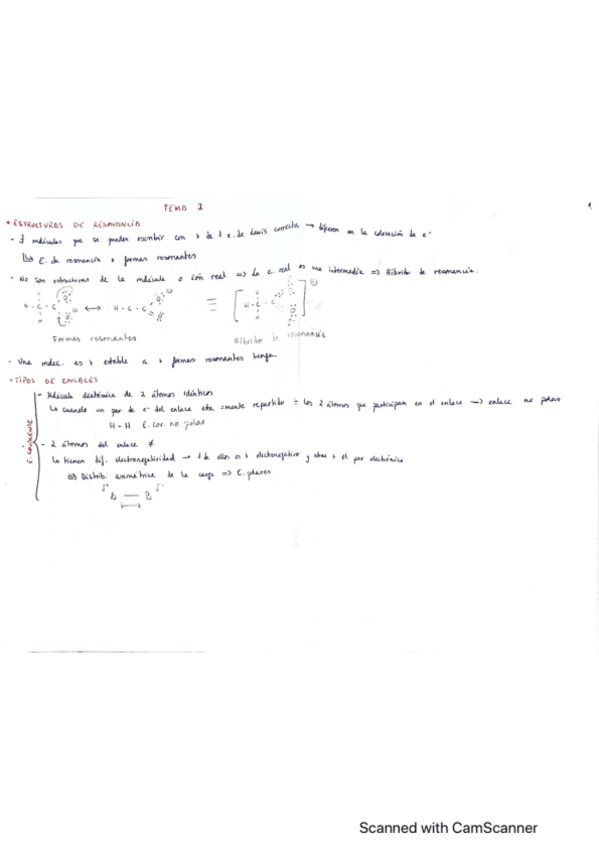 TEMA 2
• ESTRUCTURAS DE RESONANCIA
- ∃ moléculas que se pueden escribir con + de 1 e. de Lewis correcta → difieren en la colocación de e-
↳ E. de resonancia o formas resonantes
- No son estructuras de la molécula o ión real => La e. real es una intermedia => Híbrido de resonancia.
H - C - C ↔ H - C - C ≡ [H - C - C]
Formas resonantes Híbrido de resonancia
- Una molec. es + estable a + formas resonantes tenga.
• TIPOS DE ENLACES
E. COVALENTE
- Molécula diatómica de 2 átomos idénticos
↳ cuando un par de e- del enlace esta =mente repartido ÷ los 2 átomos que participan en el enlace → enlace no polar
H - H E. cov. no polar
- 2 átomos del enlace ≠
↳ tienen dif. electronegatividad → 1 de ellos es + electronegativo y atrae + el par electrónico
↳ Distrib. asimétrica de la carga => E. polares
δ+ A — B δ-
Scanned with CamScanner